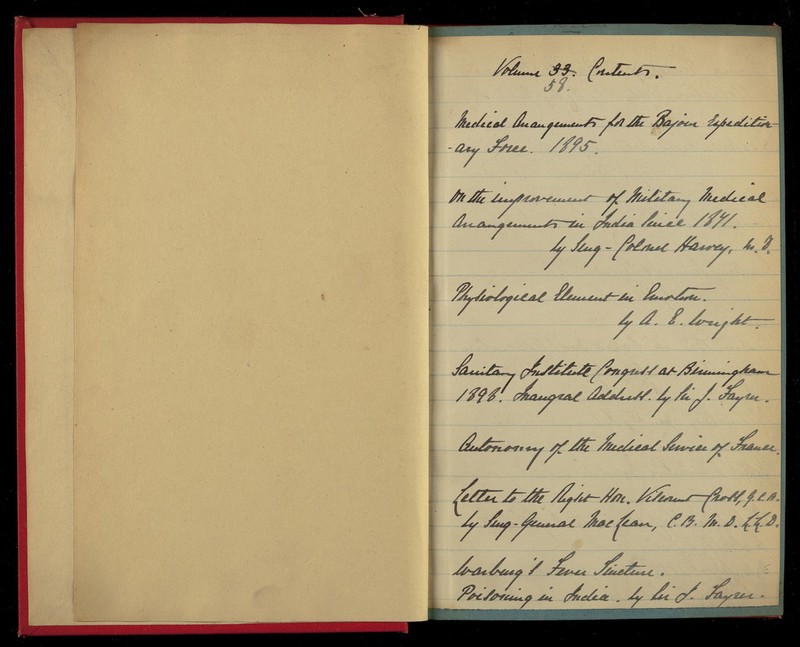 Volume 33. Contents.
58.
Medical Arrangements for the Bajour Expedition-
-ary Force. 1895.
On the improvement of Military Medical
Arrangements in India Since 1841.
by Surg-Colonel Harvey, M.D.
Physiological Element in Emotion.
by A. E. Wright.
Sanitary Institute Congress at Birmingham
1898. Inaugral Address. by Sir J. Fayrer.
Autonomy of the Medical Service of France.
Letter to the Right Hon. Viscount Cross, G.C.B.
by Surg-General MacLean, C.B. M.D. LL.D.
Warburg's Fever Tincture.
Poisoning in India. by Sir J. Fayrer.